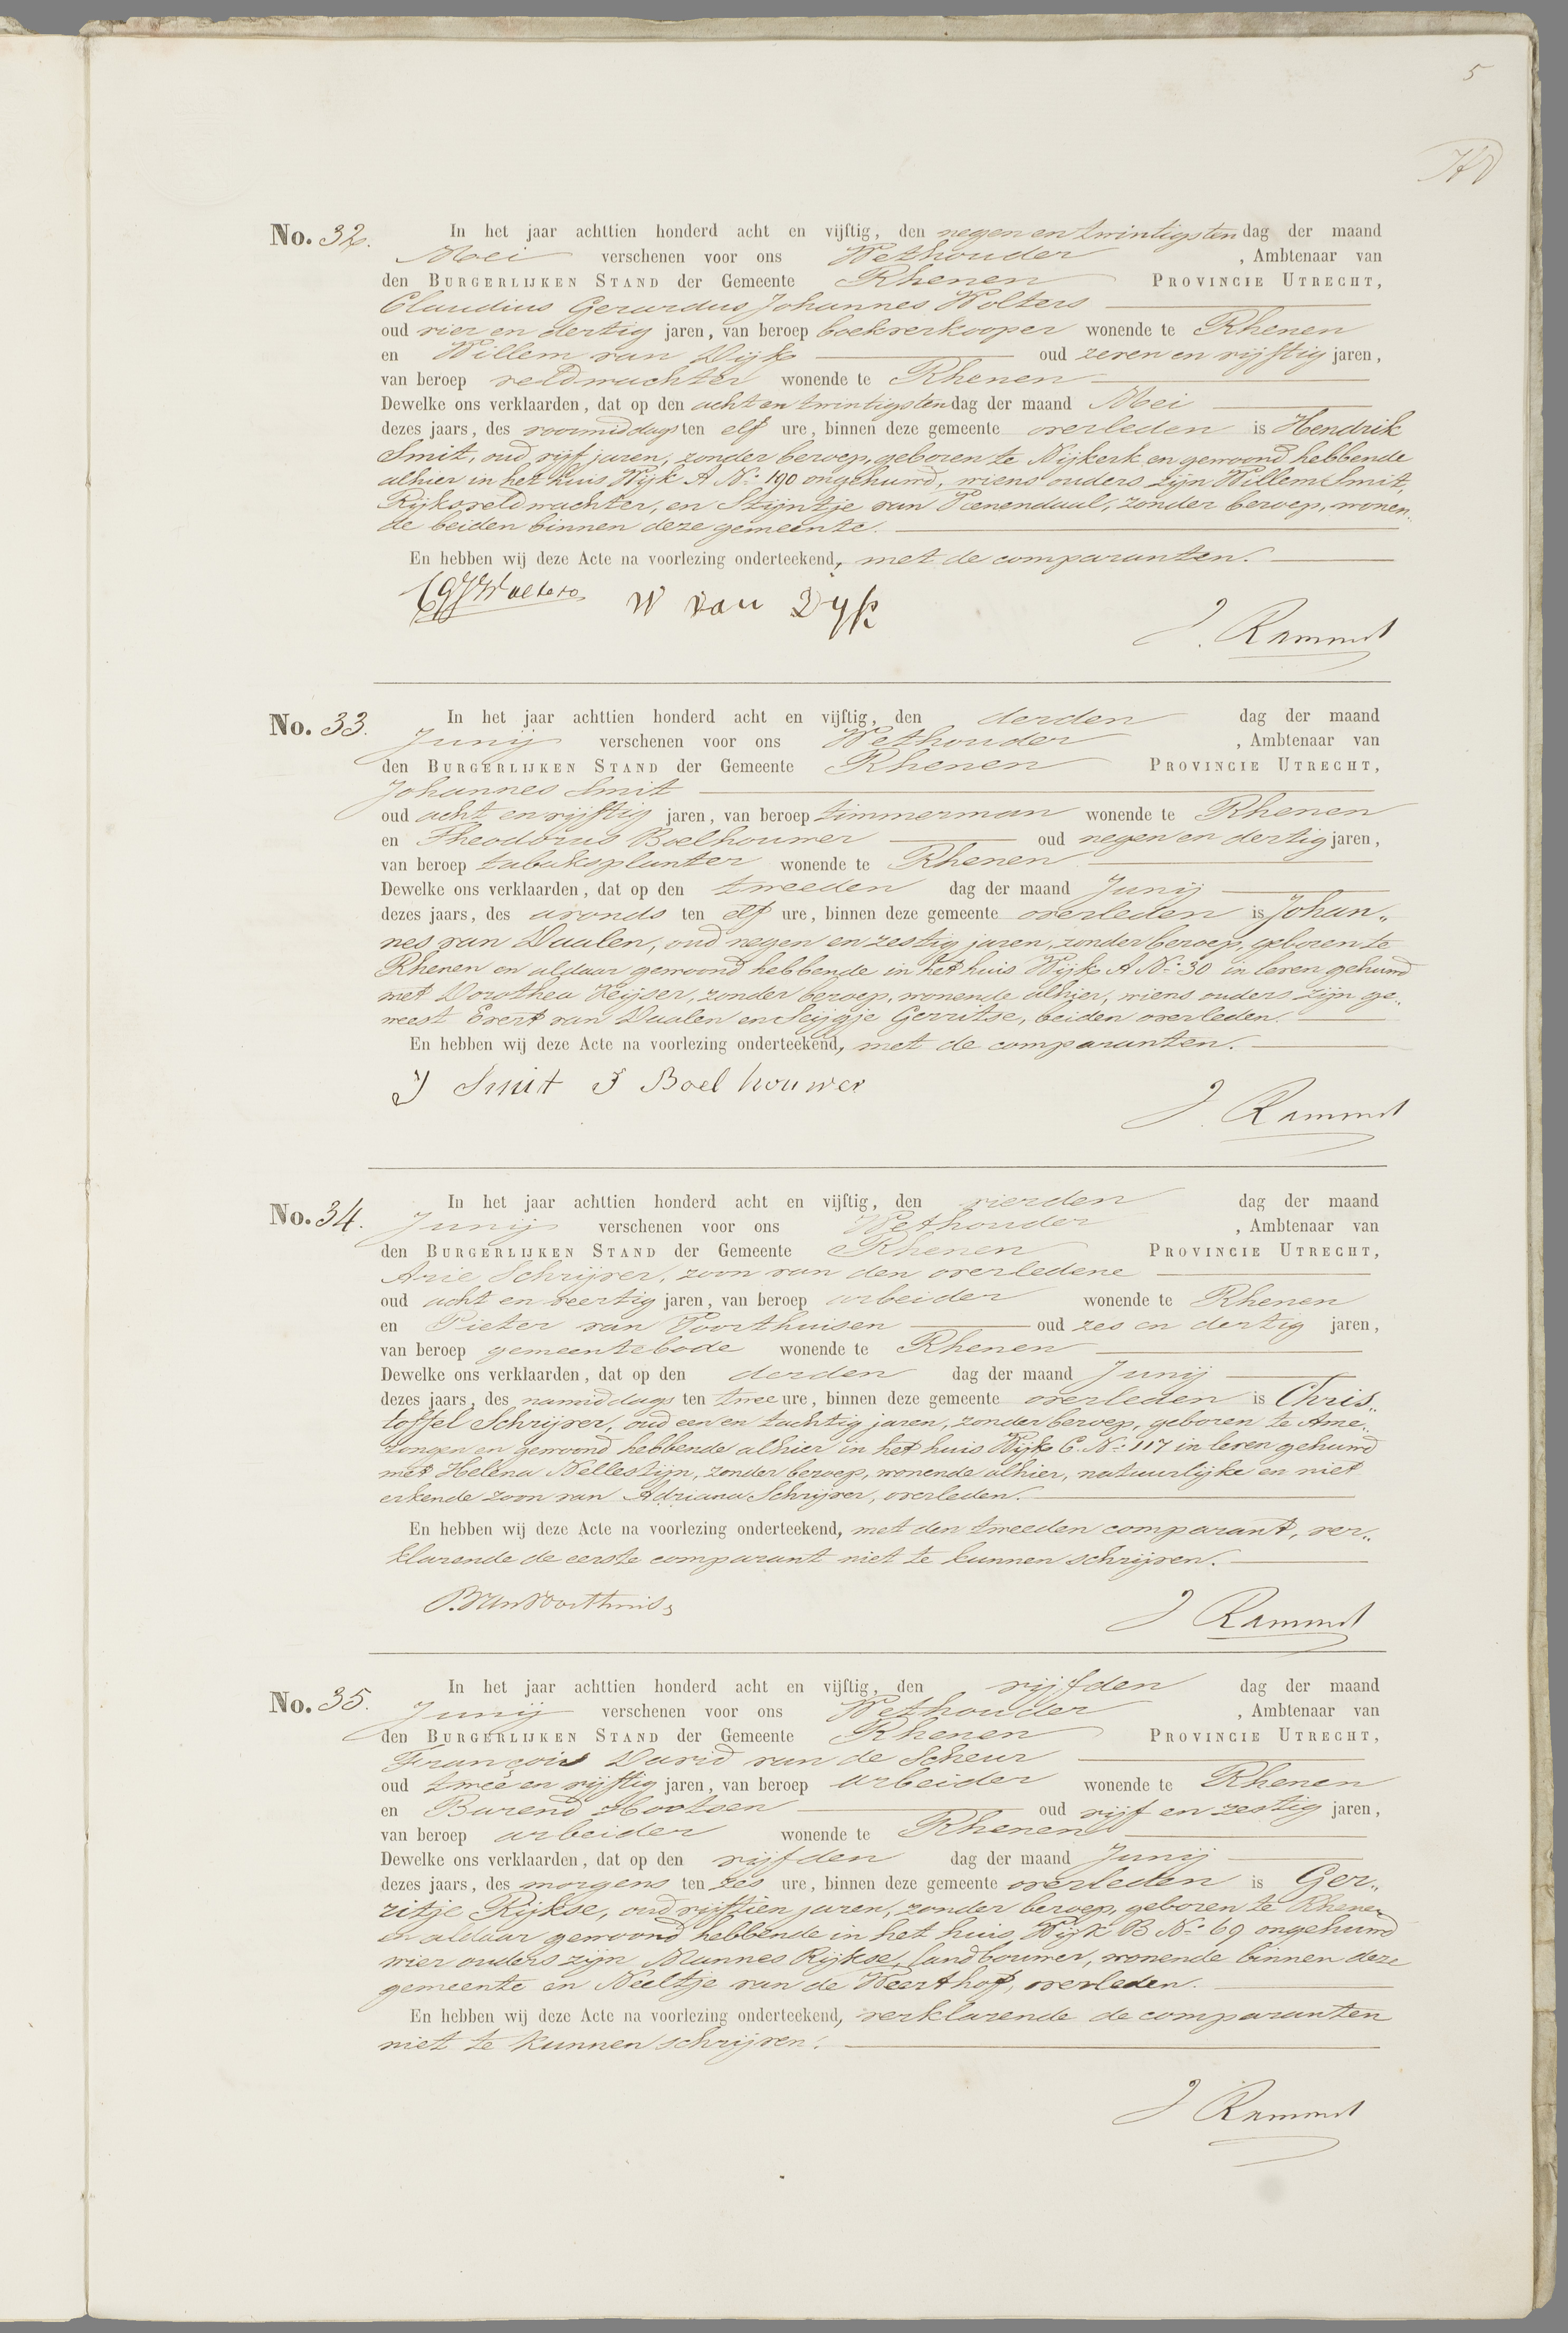 5
HD
No. 32. In het jaar achttien honderd acht en vijftig, den negen en twintigsten dag der maand
Mei verschenen voor ons Wethouder , Ambtenaar van
den BURGERLIJKEN STAND der Gemeente Rhenen PROVINCIE UTRECHT,
Claudius Gerardus Johannes Wolters
oud vier en dertig jaren, van beroep boekverkooper wonende te Rhenen
en Willem van Dijk oud zeven en vijftig jaren,
van beroep veldwachter wonende te Rhenen
Dewelke ons verklaarden, dat op den acht en twintigsten dag der maand Mei
dezes jaars, des voormiddags ten elf ure, binnen deze gemeente overleden is Hendrik
Smit, oud vijf jaren, zonder beroep, geboren te Nijkerk en gewoond hebbende
alhier in het huis Wijk A No: 190 ongehuwd, wiens ouders zijn Willem Smit,
Rijksveldwachter, en Stijntje van Veenendaal, zonder beroep, wonen„
de beiden binnen deze gemeente.
En hebben wij deze Acte na voorlezing onderteekend, met de comparanten.
CGJWolters W van Dijk
J. Rammelt
No. 33. In het jaar achttien honderd acht en vijftig, den derden dag der maand
Junij verschenen voor ons Wethouder , Ambtenaar van
den BURGERLIJKEN STAND der Gemeente Rhenen PROVINCIE UTRECHT,
Johannes Smit
oud acht en vijftig jaren, van beroep timmerman wonende te Rhenen
en Theodorus Boelhouwer oud negen en dertig jaren,
van beroep tabaksplanter wonende te Rhenen
Dewelke ons verklaarden, dat op den tweeden dag der maand Junij
dezes jaars, des avonds ten elf ure, binnen deze gemeente overleden is Johan„
nes van Daalen, oud negen en zestig jaren, zonder beroep, geboren te
Rhenen en aldaar gewoond hebbende in het huis Wijk A No: 30 in leven gehuwd
met Dorothea Keijser, zonder beroep, wonende alhier, wiens ouders zijn ge„
weest Evert van Daalen en Seijgje Gerritse, beiden overleden.
En hebben wij deze Acte na voorlezing onderteekend, met de comparanten.
J Smit T Boelhouwer
J. Rammelt
No. 34. In het jaar achttien honderd acht en vijftig, den vierden dag der maand
Junij verschenen voor ons Wethouder , Ambtenaar van
den BURGERLIJKEN STAND der Gemeente Rhenen PROVINCIE UTRECHT,
Arie Schrijver, zoon van den overledene
oud acht en veertig jaren, van beroep arbeider wonende te Rhenen
en Pieter van Voorthuisen oud zes en dertig jaren,
van beroep gemeentebode wonende te Rhenen
Dewelke ons verklaarden, dat op den derden dag der maand Junij
dezes jaars, des namiddags ten twee ure, binnen deze gemeente overleden is Chris„
toffel Schrijver, oud een en tachtig jaren, zonder beroep, geboren te Ame„
rongen en gewoond hebbende alhier in het huis Wijk C. No: 117 in leven gehuwd
met Helena Nellestijn, zonder beroep, wonende alhier, natuurlijke en niet
erkende zoon van Adriana Schrijver, overleden.
En hebben wij deze Acte na voorlezing onderteekend, met den tweeden comparant, ver„
klarende de eerste comparant niet te kunnen schrijven.
P. van Voorthuis
J Rammelt
No. 35. In het jaar achttien honderd acht en vijftig, den vijfden dag der maand
Junij verschenen voor ons Wethouder , Ambtenaar van
den BURGERLIJKEN STAND der Gemeente Rhenen PROVINCIE UTRECHT,
François David van de Scheur
oud twee en vijftig jaren, van beroep arbeider wonende te Rhenen
en Barend Hootsen oud vijf en zestig jaren,
van beroep arbeider wonende te Rhenen
Dewelke ons verklaarden, dat op den vijfden dag der maand Junij
dezes jaars, des morgens ten zes ure, binnen deze gemeente overleden is Ger„
ritje Rijkse, oud vijftien jaren, zonder beroep, geboren te Rhenen
en aldaar gewoond hebbende in het huis Wijk B No: 69 ongehuwd
wier ouders zijn Mannes Rijkse, landbouwer, wonende binnen deze
gemeente en Neeltje van de Weerthof, overleden.
En hebben wij deze Acte na voorlezing onderteekend, verklarende de comparanten
niet te kunnen schrijven.
J Rammelt